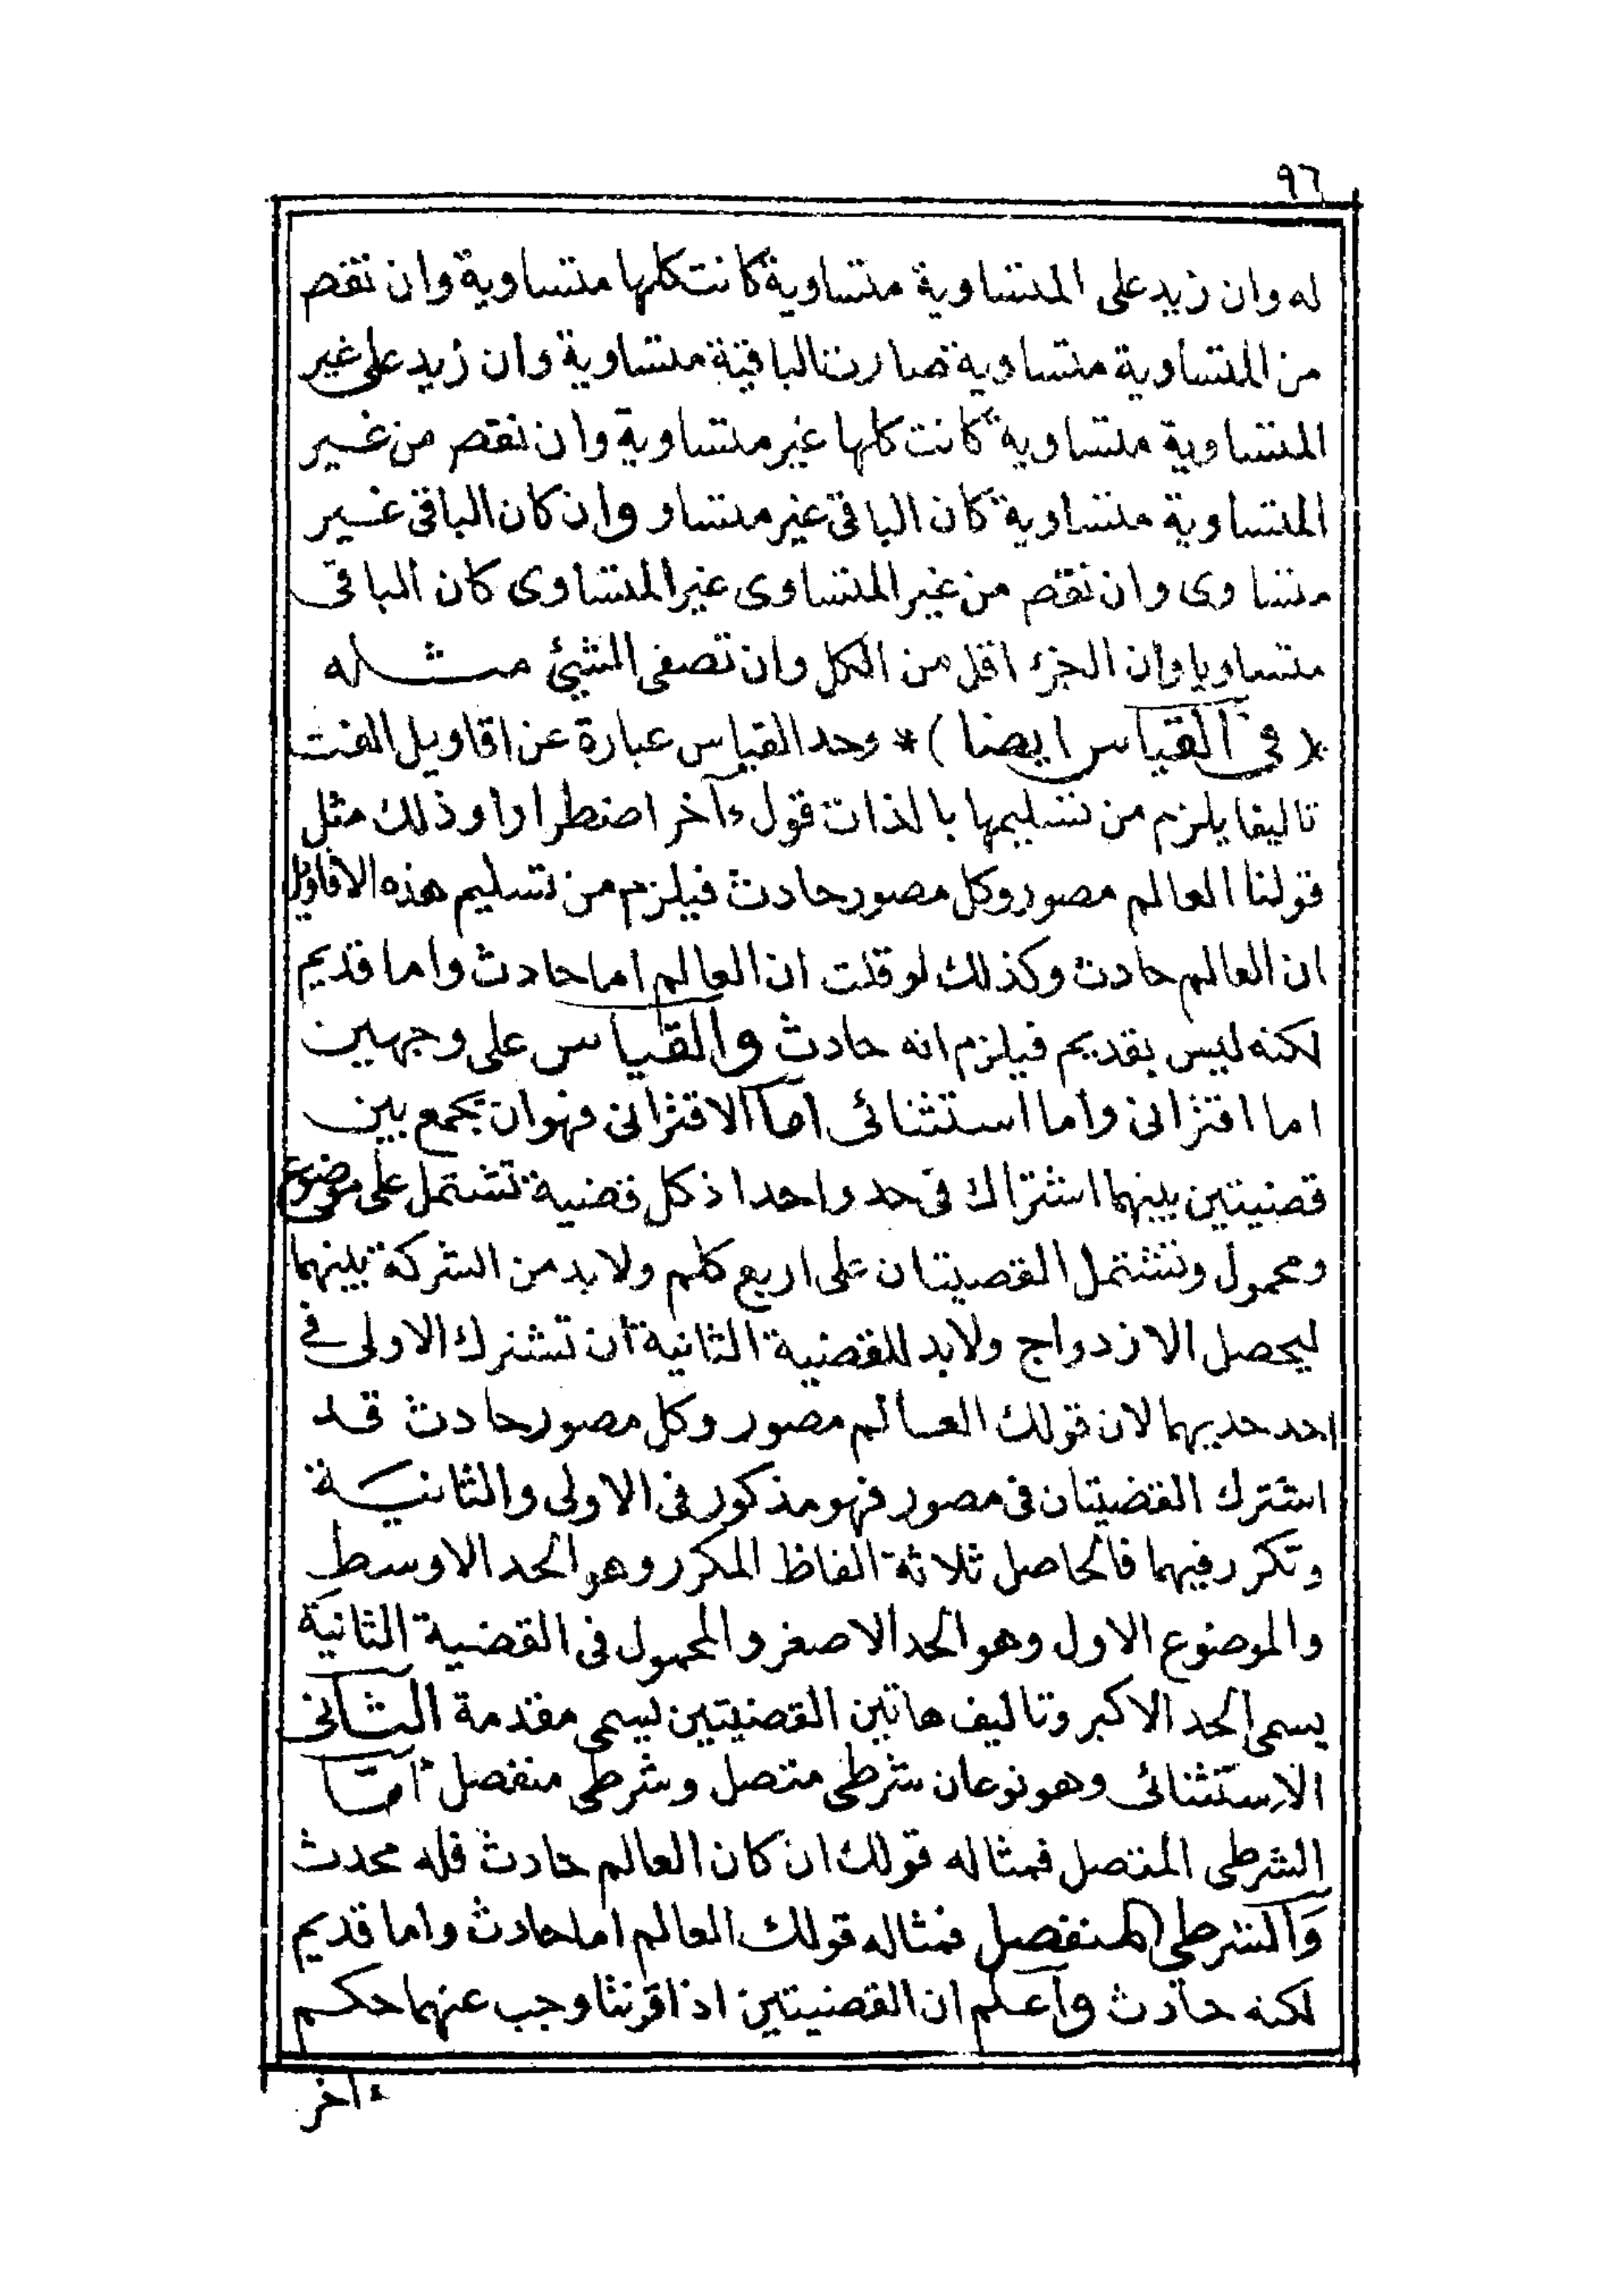 ٩٦
له وان زيد على المتساوية متساوية كانت كلها متساوية وان نقص
من المتساوية متساوية صارت الباقية متساوية وان زيد على غير
المتساوية متساوية كانت كلها غير متساوية وان نقص من غير
المتساوية متساوية كان الباقى غير متساو وان كان الباقى غير
متساوى وان نقص من غير المتساوى غير المتساوى كان الباقى
متساويا وان الجزء اقل من الكل وان نصفى الشيئ مثله
*( فى القياس ايضا )* وحد القياس عبارة عن اقاويل الفت
تاليفا يلزم من تسليمها بالذات قول ءاخر اضطرارا وذلك مثل
قولنا العالم مصور وكل مصور حادث فيلزم من تسليم هذه الاقاويل
ان العالم حادث وكذلك لو قلت ان العالم اما حادث واما قديم
لكنه ليس بقديم فيلزم انه حادث والقياس على وجهين
اما اقترانى واما استثنائى اما الاقترانى فهو ان تجمع بين
قضيتين بينهما اشتراك فى حد واحد اذ كل قضية تشتمل على موضوع
ومحمول وتشتمل القضيتان على اربع كلم ولا بد من الشركة بينهما
ليحصل الازدواج ولابد للقضية الثانية ان تشترك الاولى فى
احد حديهما لان قولك العالم مصور وكل مصور حادث قد
اشترك القضيتان فى مصور فهو مذكور فى الاولى والثانية
وتكرر فيهما فالحاصل ثلاثة الفاظ المكرر وهو الحد الاوسط
والموضوع الاول وهو الحد الاصغر والمحمول فى القضية الثانية
يسمى الحد الاكبر وتاليف هاتين القضيتين يسمى مقدمة الثانى
الاستثنائى وهو نوعان شرطى متصل وشرطى منفصل امّا
الشرطى المتصل فمثاله قولك ان كان العالم حادث فله محدث
والشرطى المنفصل فمثاله قولك العالم اما حادث واما قديم
لكنه حادث واعلم ان القضيتين اذا اقرنتا وجب عنهما حكم
ءاخر